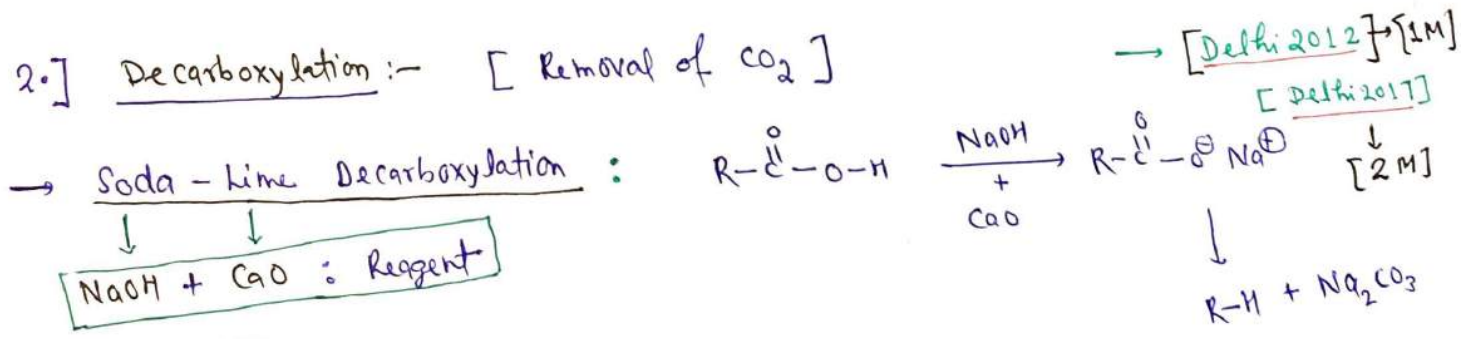 2.] Decarboxylation :- [ Removal of CO₂ ] → [Delhi 2012] → [1M]
[ Delhi 2017] ↓ [2 M]
→ Soda - Lime Decarboxylation : R-C(=O)-O-H —NaOH + CaO→ R-C(=O)-O⊖ Na⊕
↓ ↓ ↓
NaOH + CaO : Reagent
R-H + Na₂CO₃